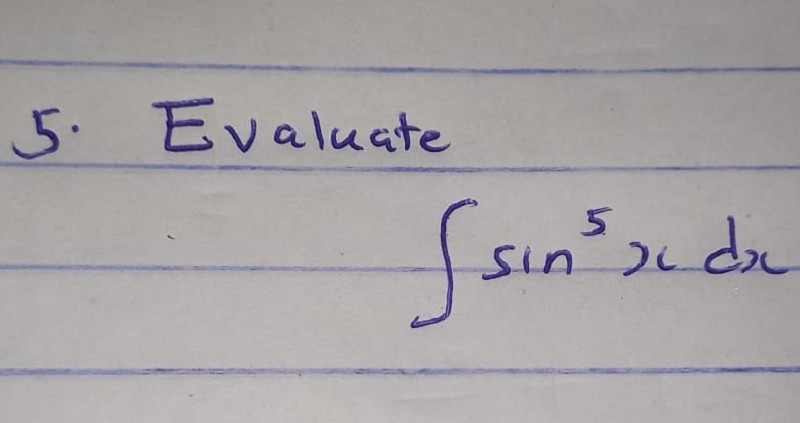 5. Evaluate
∫ sin⁵ x dx